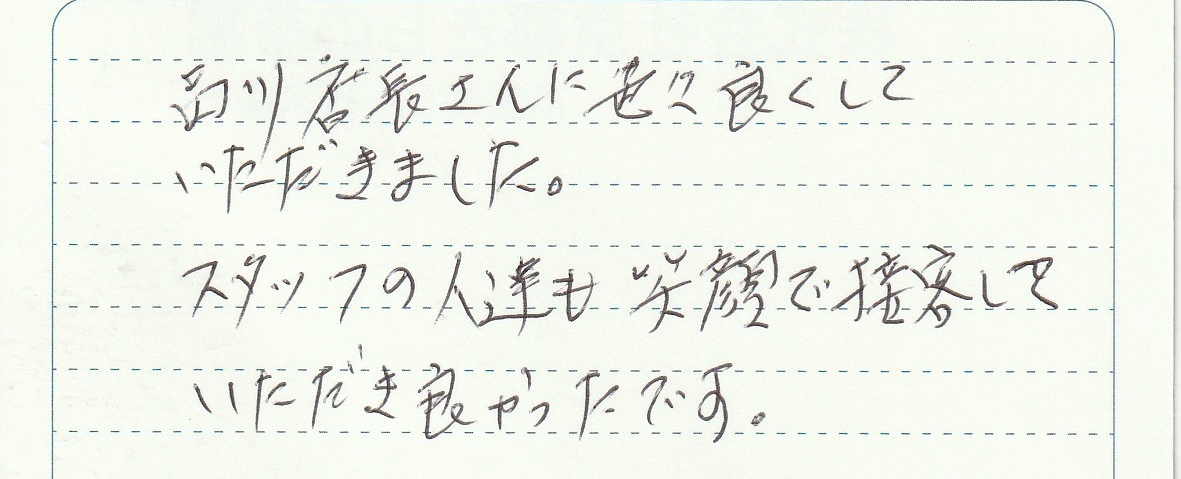 店長さんに良くして
いただきました。
スタッフの人達も笑顔で接客して
いただき良かったです。